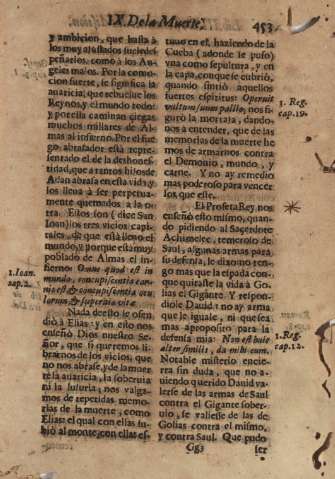 IX. De la Muerte.
453
y ambicion, que hasta à
los muy ajustados suele des
peñarlos, como à los An-
geles malos. Por la como-
cion fuerte, se significa la
auaricia; que rebuelue los
Reynos, y el mundo todo:
y por ella caminan ciegas
muchos millares de Al-
mas al infierno. Por el fue-
go abrasador està repre-
sentado el de la deshones-
tidad, que a tantos hijos de
Adan abrasa en esta vida, y
los lleua à ser perpetua-
mente quemados à la
otra. Estos son (dice San
Ioan) los tres vicios capi-
tales, de que està lleno el
mundo, y porque està muy
poblado de Almas el in-
fierno Omne quod est in
mundo, concupiscentia car-
nis est, & concupiscentia ocu
lorum & superbia vitæ.
Nada de esto le ofen
diò à Elias: y en esto nos
enseñò Dios nuestro Se-
ñor, que si queremos li-
brarnos de los vicios, que
no nos abrase, y de la muer
te la auaricia, la soberuia
ni la luxuria, nos valga-
mos de repetidas memo-
rias de la muerte, como
Elias: el qual con ellas su-
biò al monte; con ellas es-
1. Ioan.
cap. 2.
tuuo en el, haziendo de la
Cueba (adonde se puso)
vna como sepultura, y con
la capa, con que se cubriò,
quando sintiò aquellos
fuertes espiritus: Operuit
vultum suum pallio, nos fi-
gurò la mortaja, dando-
nos à entender, que de las
memorias de la muerte he
mos de armarnos contra
el Demonio, mundo, y
carne. Y no ay remedio
mas poderoso para vencer
los que este.
El Profeta Rey nos
enseñò esto mismo, quan-
do pidiendo al Sacerdote
Achimelec, temeroso de
Saul, algunas armas para
su defensa, le dixo no ten-
go mas que la espada con
que quitaste la vida à Go-
lias el Gigante. Y respon-
diole Dauid: no ay arma
que le iguale, ni que sea
mas aproposito para la
defensa mia: Non est huic
alter similis, da mihi eum.
Notable misterio encie-
rra sin duda, que no a-
uiendo querido Dauid va-
lerse de las armas de Saul
contra el Gigante sober-
uio, se valiesse de las de
Golias contra el mismo,
y contra Saul. Que pudo
1. Reg.
cap. 19.
1. Reg.
cap. 12.
Gg3
ser